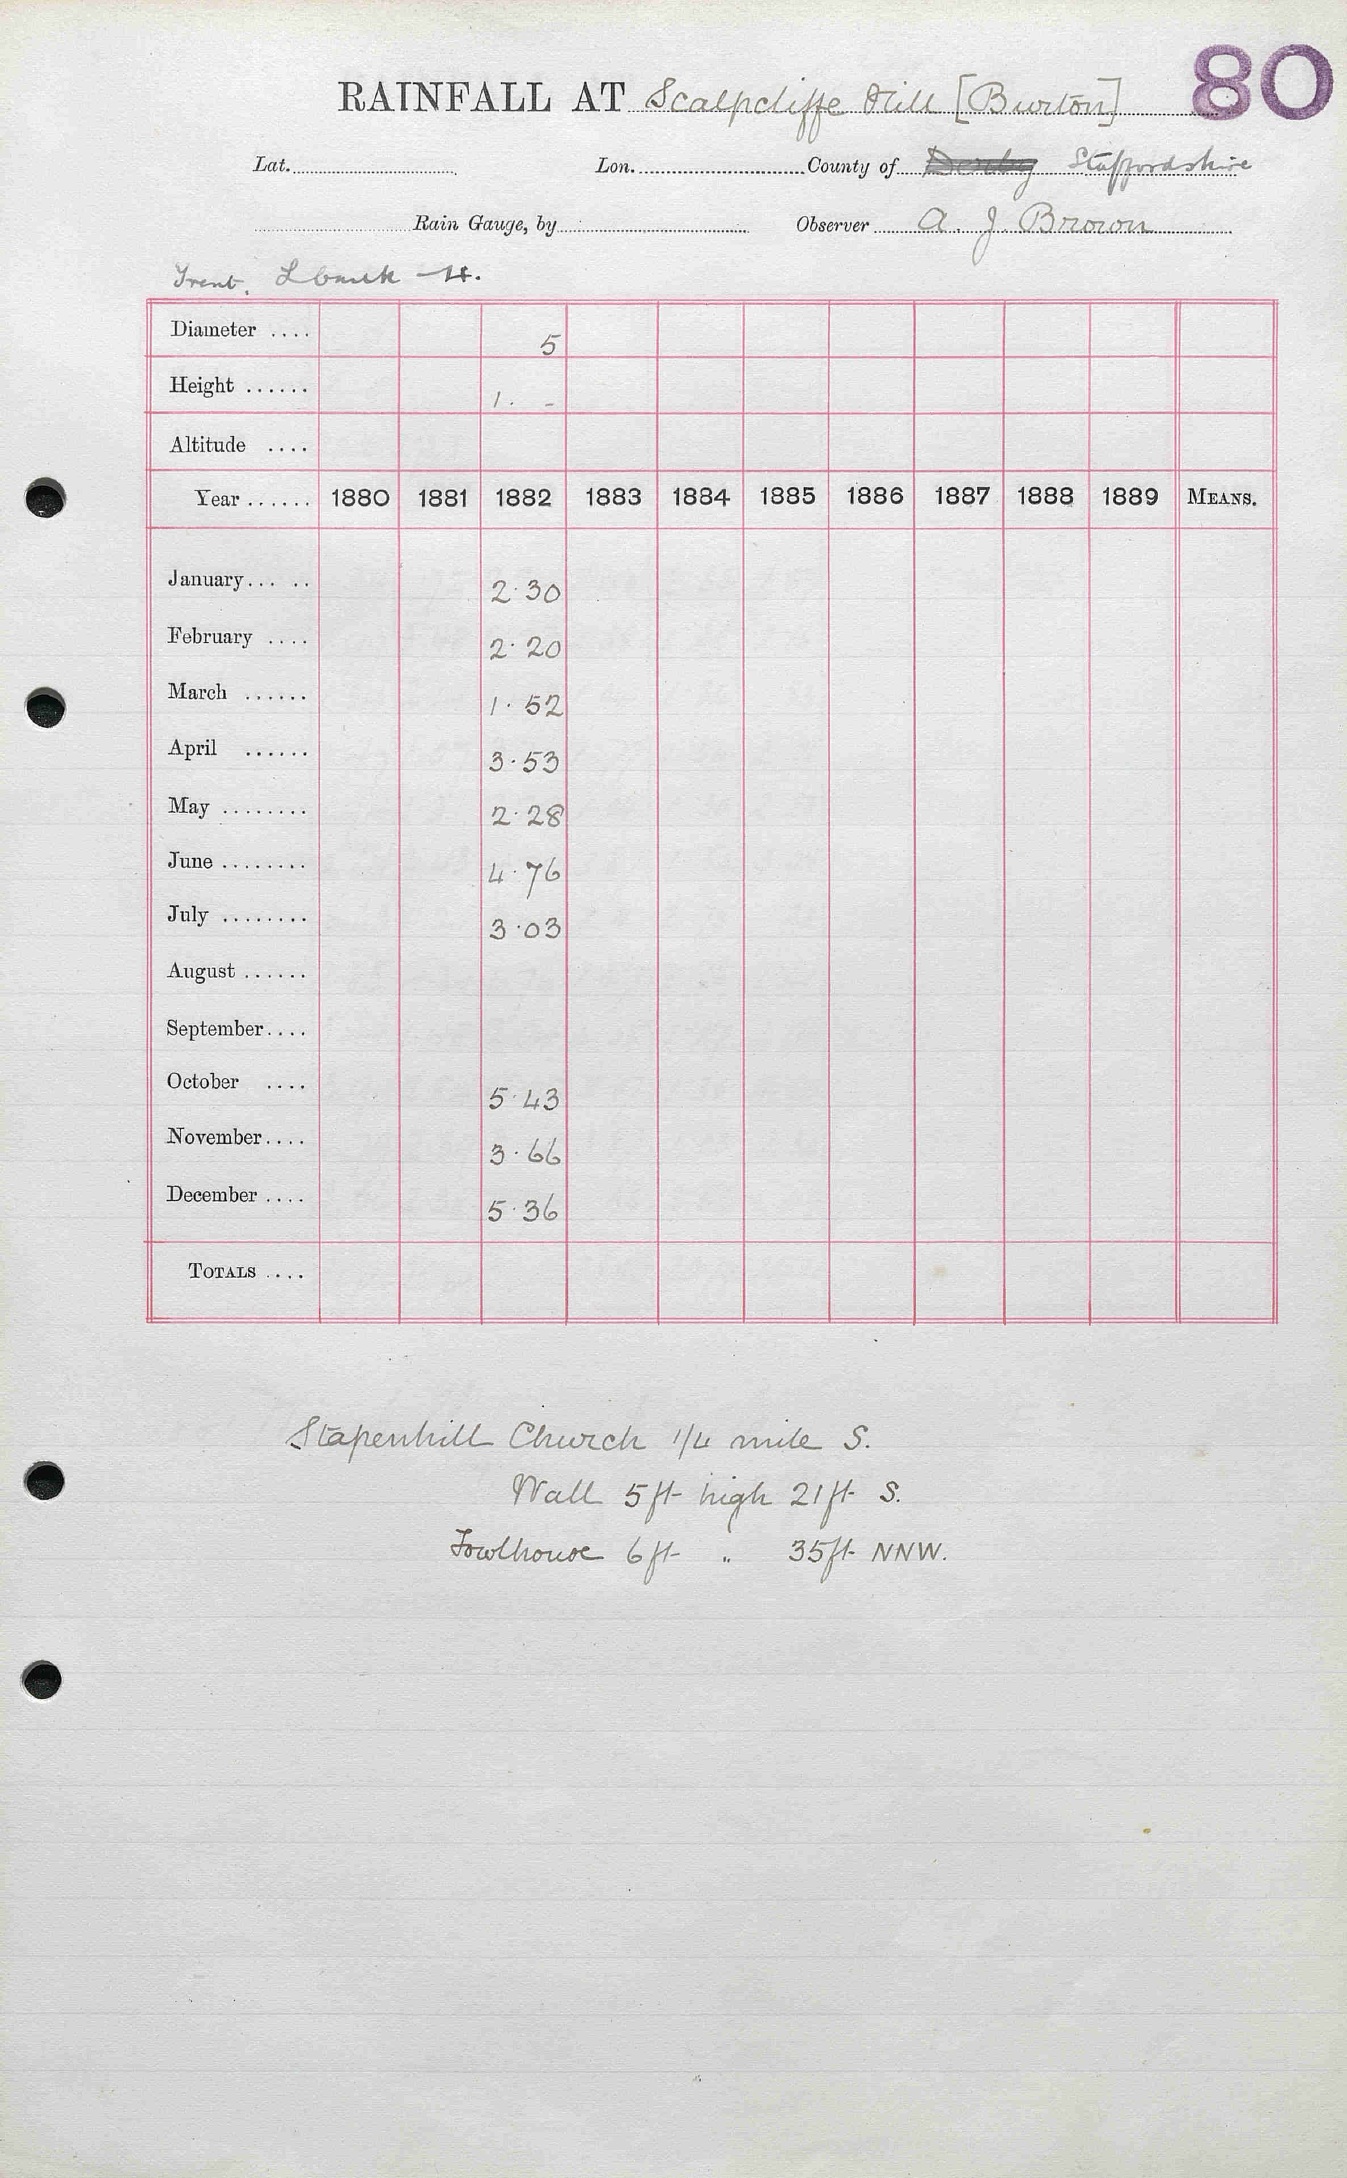 80
RAINFALL AT Scalpcliffe Hill [Burton]
Lat. Lon. County of Derby Staffordshire
Rain Gauge, by Observer A. J. Brown
Trent.
Diameter .... 5
Height ...... 1. -
Altitude ....
Year ...... 1880 1881 1882 1883 1884 1885 1886 1887 1888 1889 MEANS.
January... .. 2.30
February .... 2.20
March ...... 1.52
April ...... 3.53
May ........ 2.28
June ........ 4.76
July ........ 3.03
August ......
September....
October .... 5.43
November.... 3.66
December .... 5.36
TOTALS ....
Stapenhill Church 1/4 mile S.
Wall 5ft high 21ft S.
Fowlhouse 6ft " 35ft NNW.